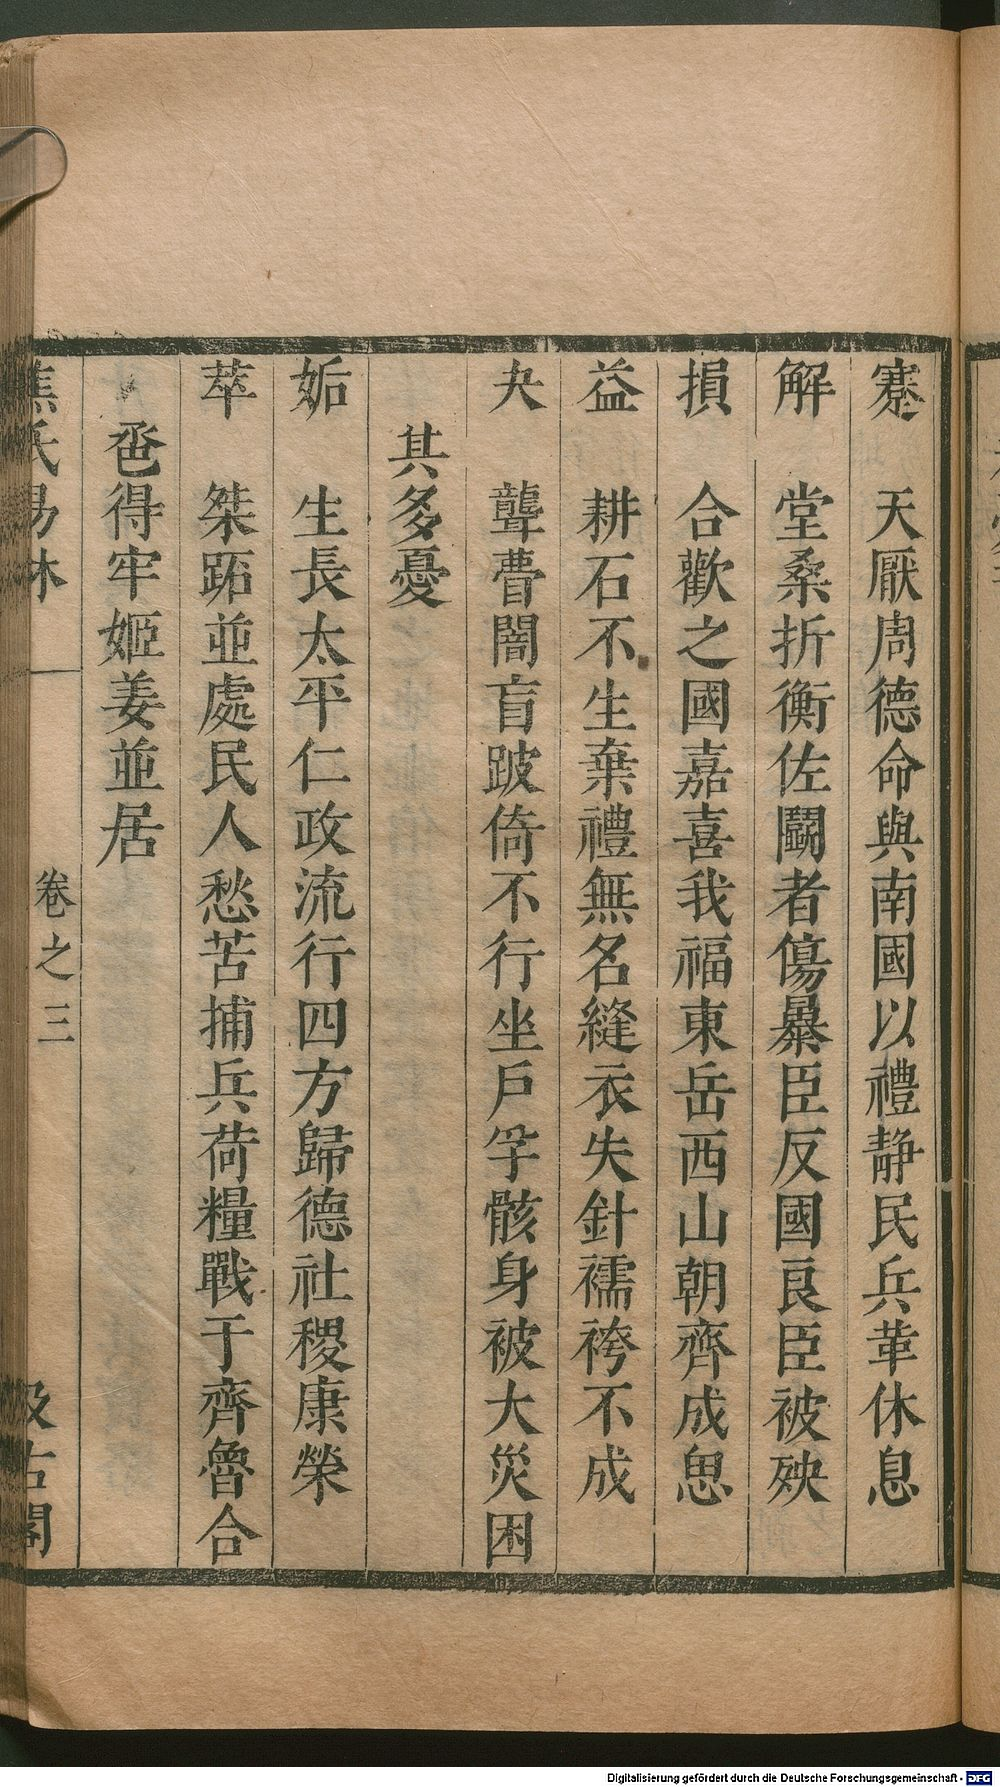 蹇 天厭周德命與南國以禮靜民兵革休息
解 堂桑折衡佐鬭者傷暴臣反國良臣被殃
損 合歡之國嘉喜我福東岳西山朝齊成思
益 耕石不生棄禮無名縫衣失針襦袴不成
夬 聾瞢闇盲跛倚不行坐戶孚骸身被大災困
其多憂
姤 生長太平仁政流行四方歸德社稷康榮
萃 桀跖並處民人愁苦捕兵荷糧戰于齊魯合
巹得牢姬姜並居
焦氏易林 卷之三 汲古閣
Digitalisierung gefördert durch die Deutsche Forschungsgemeinschaft - DFG